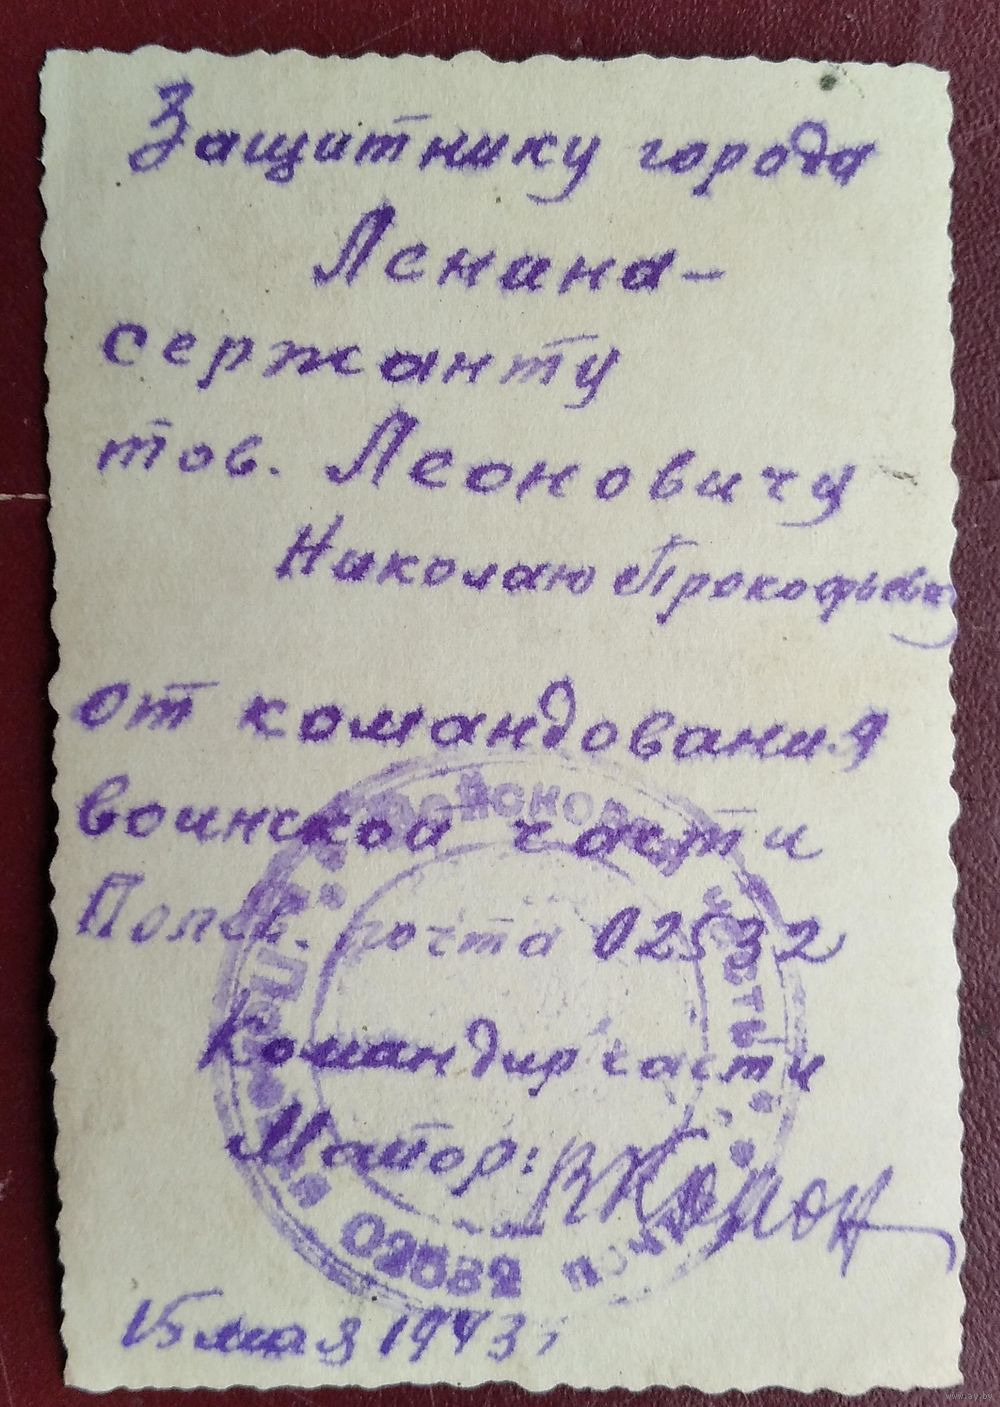 Защитнику города
Ленина –
сержанту
тов. Леоновичу
Николаю Прокофьевичу
от командования
воинской части
Полев. почта 02532
Командир части
Майор:
15 мая 1943
02532
www.ay.by